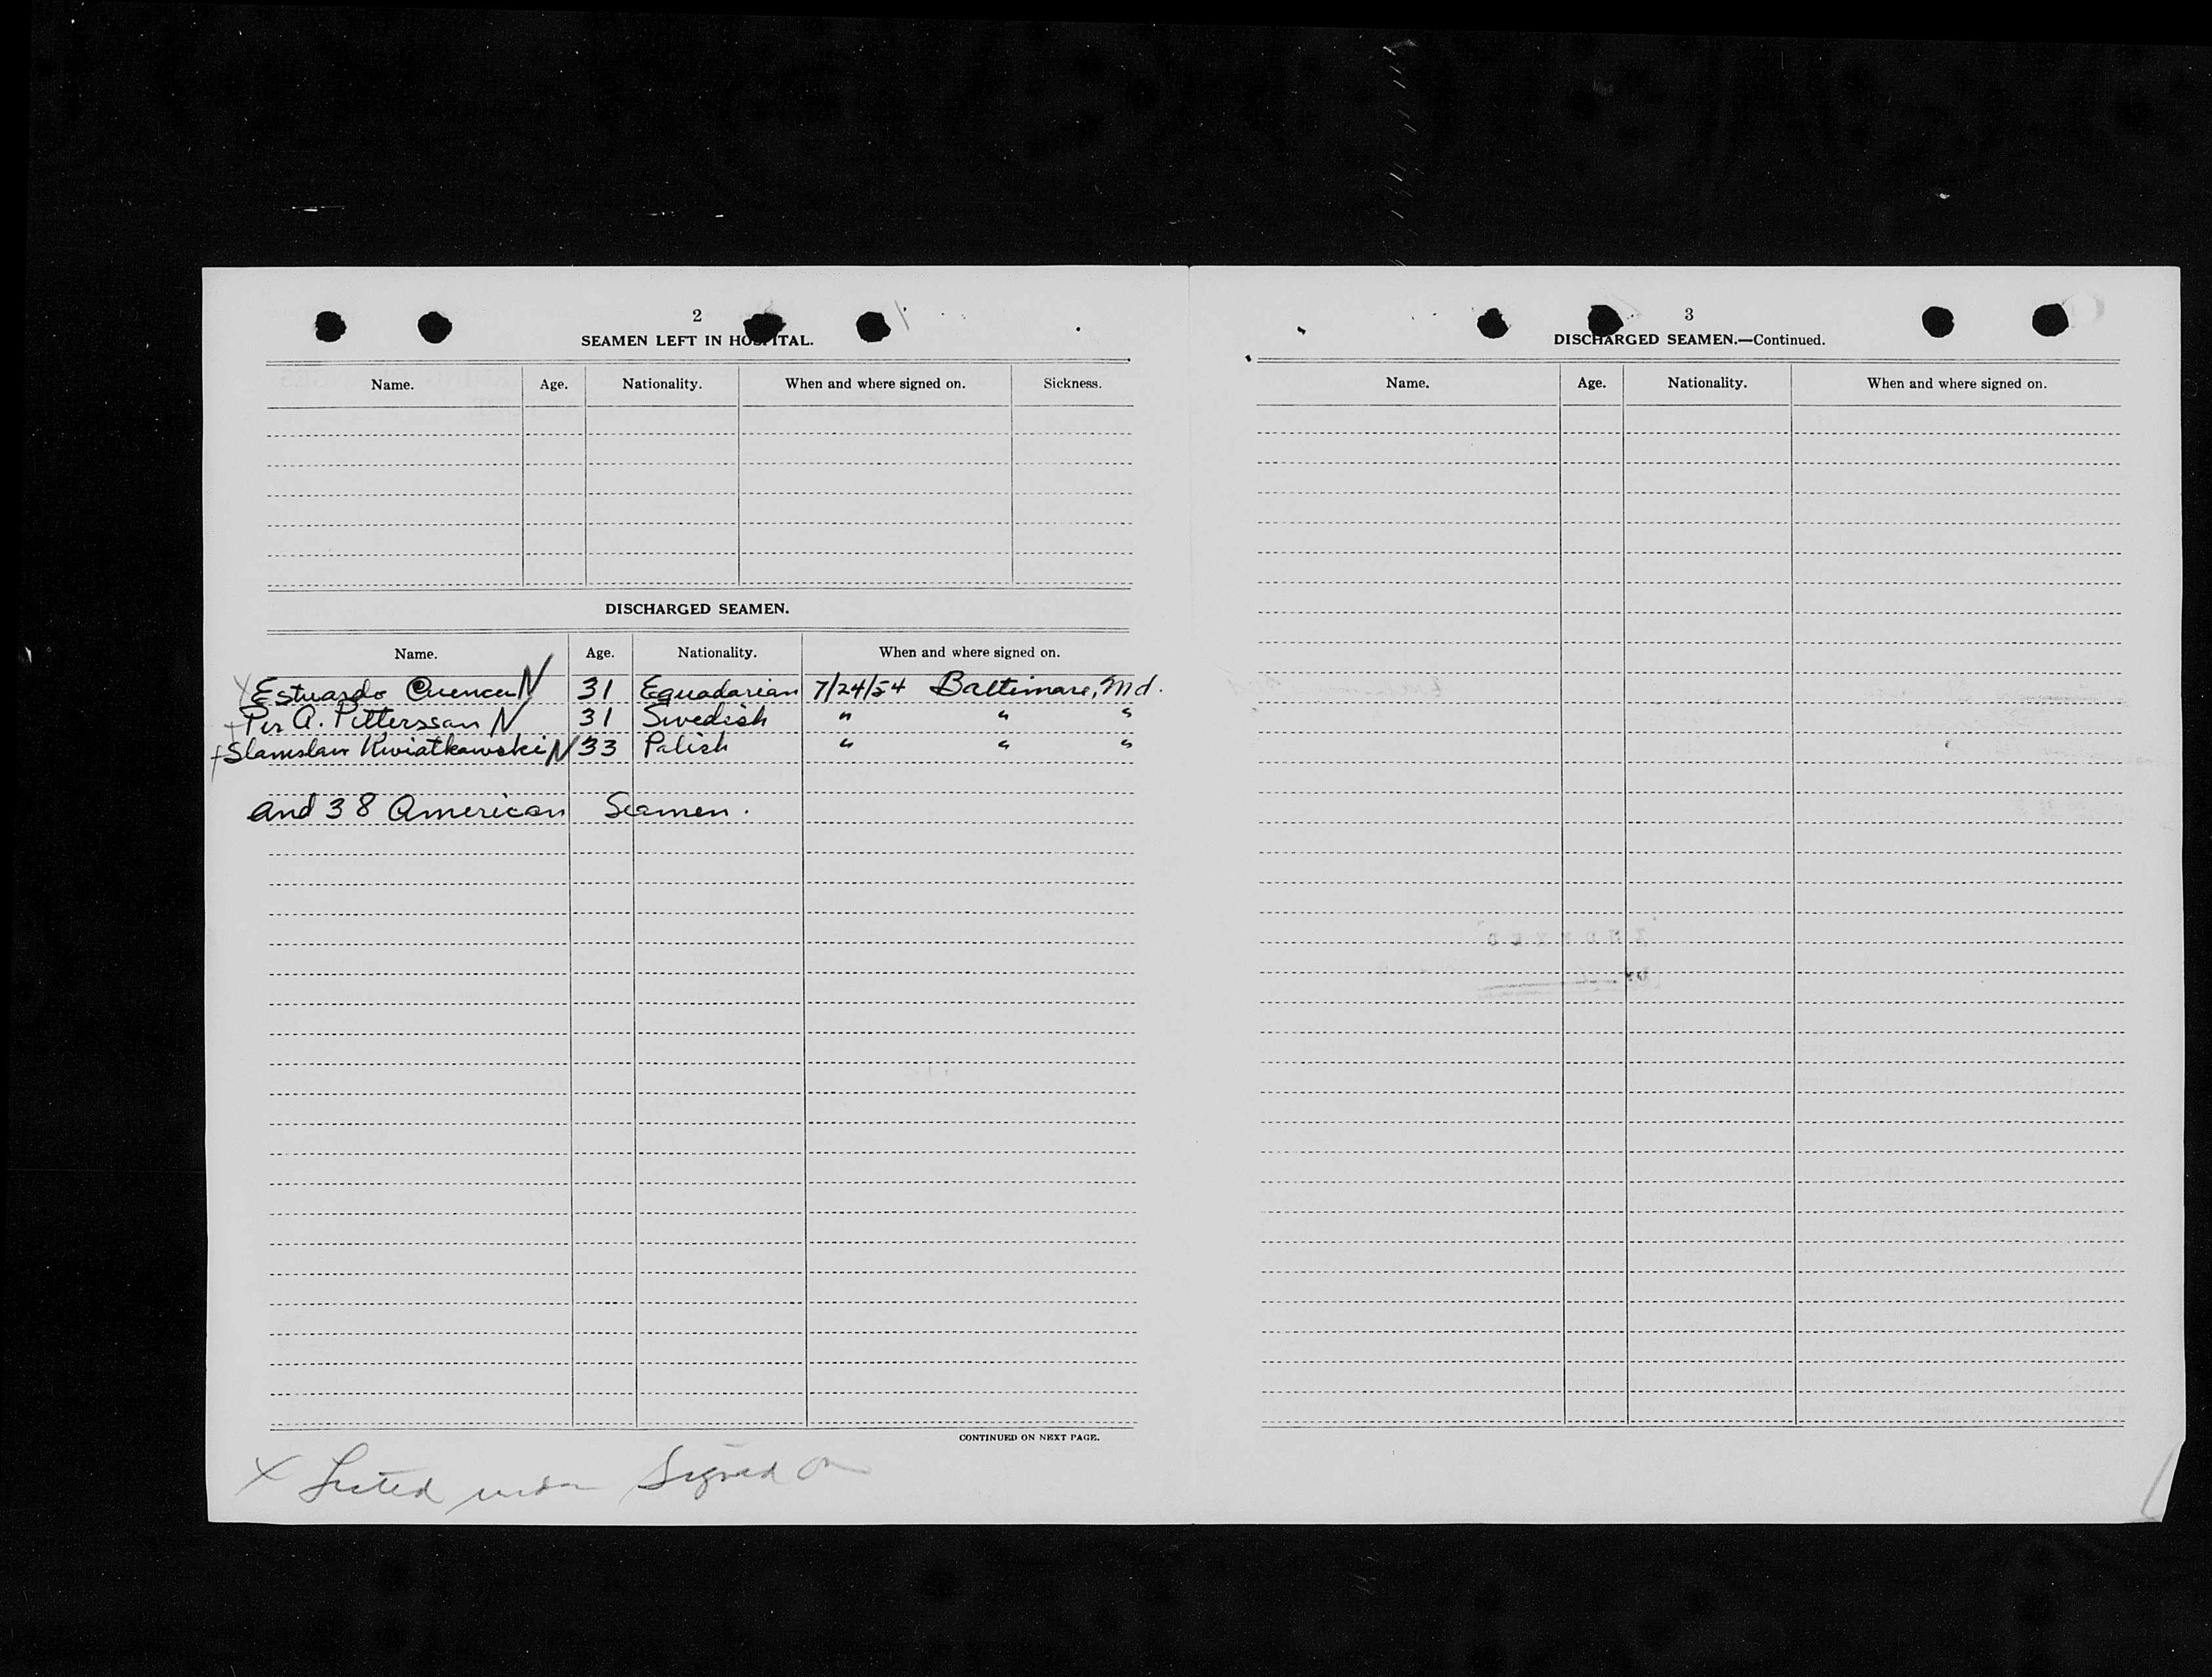 2
SEAMEN LEFT IN HOSPITAL.
Name. Age. Nationality. When and where signed on. Sickness.
DISCHARGED SEAMEN.
Name. Age. Nationality. When and where signed on.
X Estuardo Cuenca N 31 Equadorian 7/24/54 Baltimore, Md.
+ Per A. Pitterssan N 31 Swedish " " "
+ Stanislaw Kwiatkowski N 33 Polish " " "
and 38 American Seamen.
CONTINUED ON NEXT PAGE.
X Listed under Signed on
3
DISCHARGED SEAMEN.—Continued.
Name. Age. Nationality. When and where signed on.